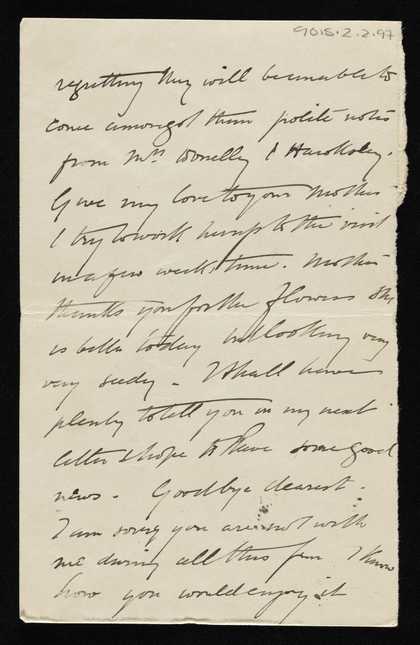 9015.2.2.97
regretting they will be unable to
come amongst them polite notes
from Mrs Donelly & Hawksley.
Give my love to your Mother
I try to work her up to the visit
in a few weeks time. Mother
thanks you for the flowers She
is better today but looking very
very seedy - I shall have
plenty to tell you in my next
letter & hope to have some good
news - Goodbye dearest -
I am sorry you are not with
me during all this fun I know
how you would enjoy it